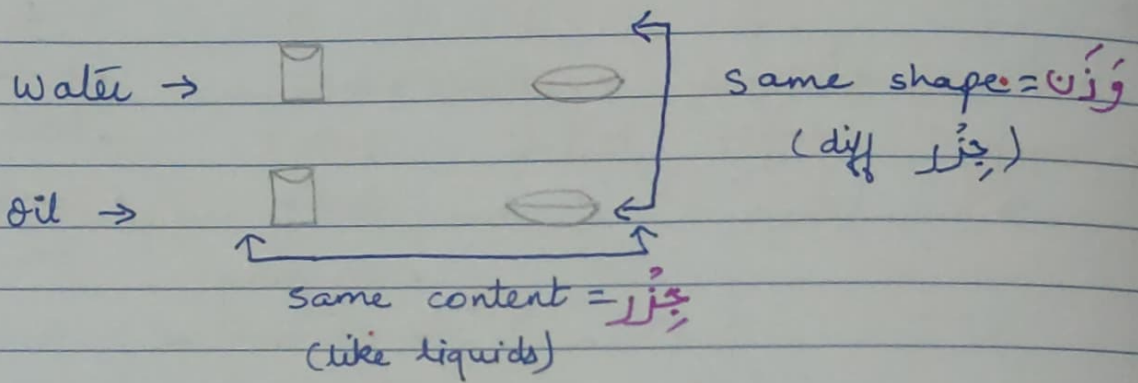 Water →
same shape = وَزَن
(diff جِزُر)
oil →
same content = جِزُر
(like liquids)